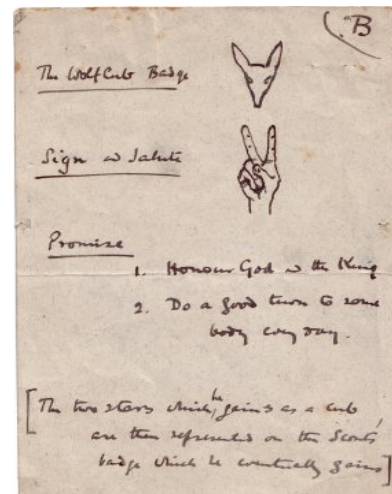 B
The Wolf Cub Badge
Sign or Salute
Promise
1. Honour God & the King
2. Do a good turn to some
body every day.
[The two stars which he gains as a cub,
are then represented on the Scouts
badge which he eventually gains]